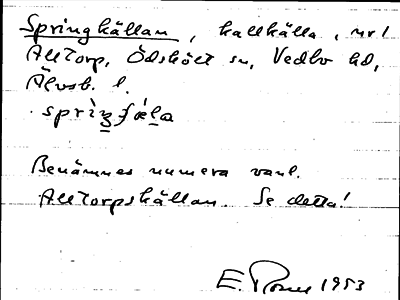 Springkällan, kallkälla, nr 1
Alltorp, Ödskölt sn, Vedbo hd,
Älvsb. l.
Benämnes numera vanl.
Alltorpskällan. Se detta!
E. 1953